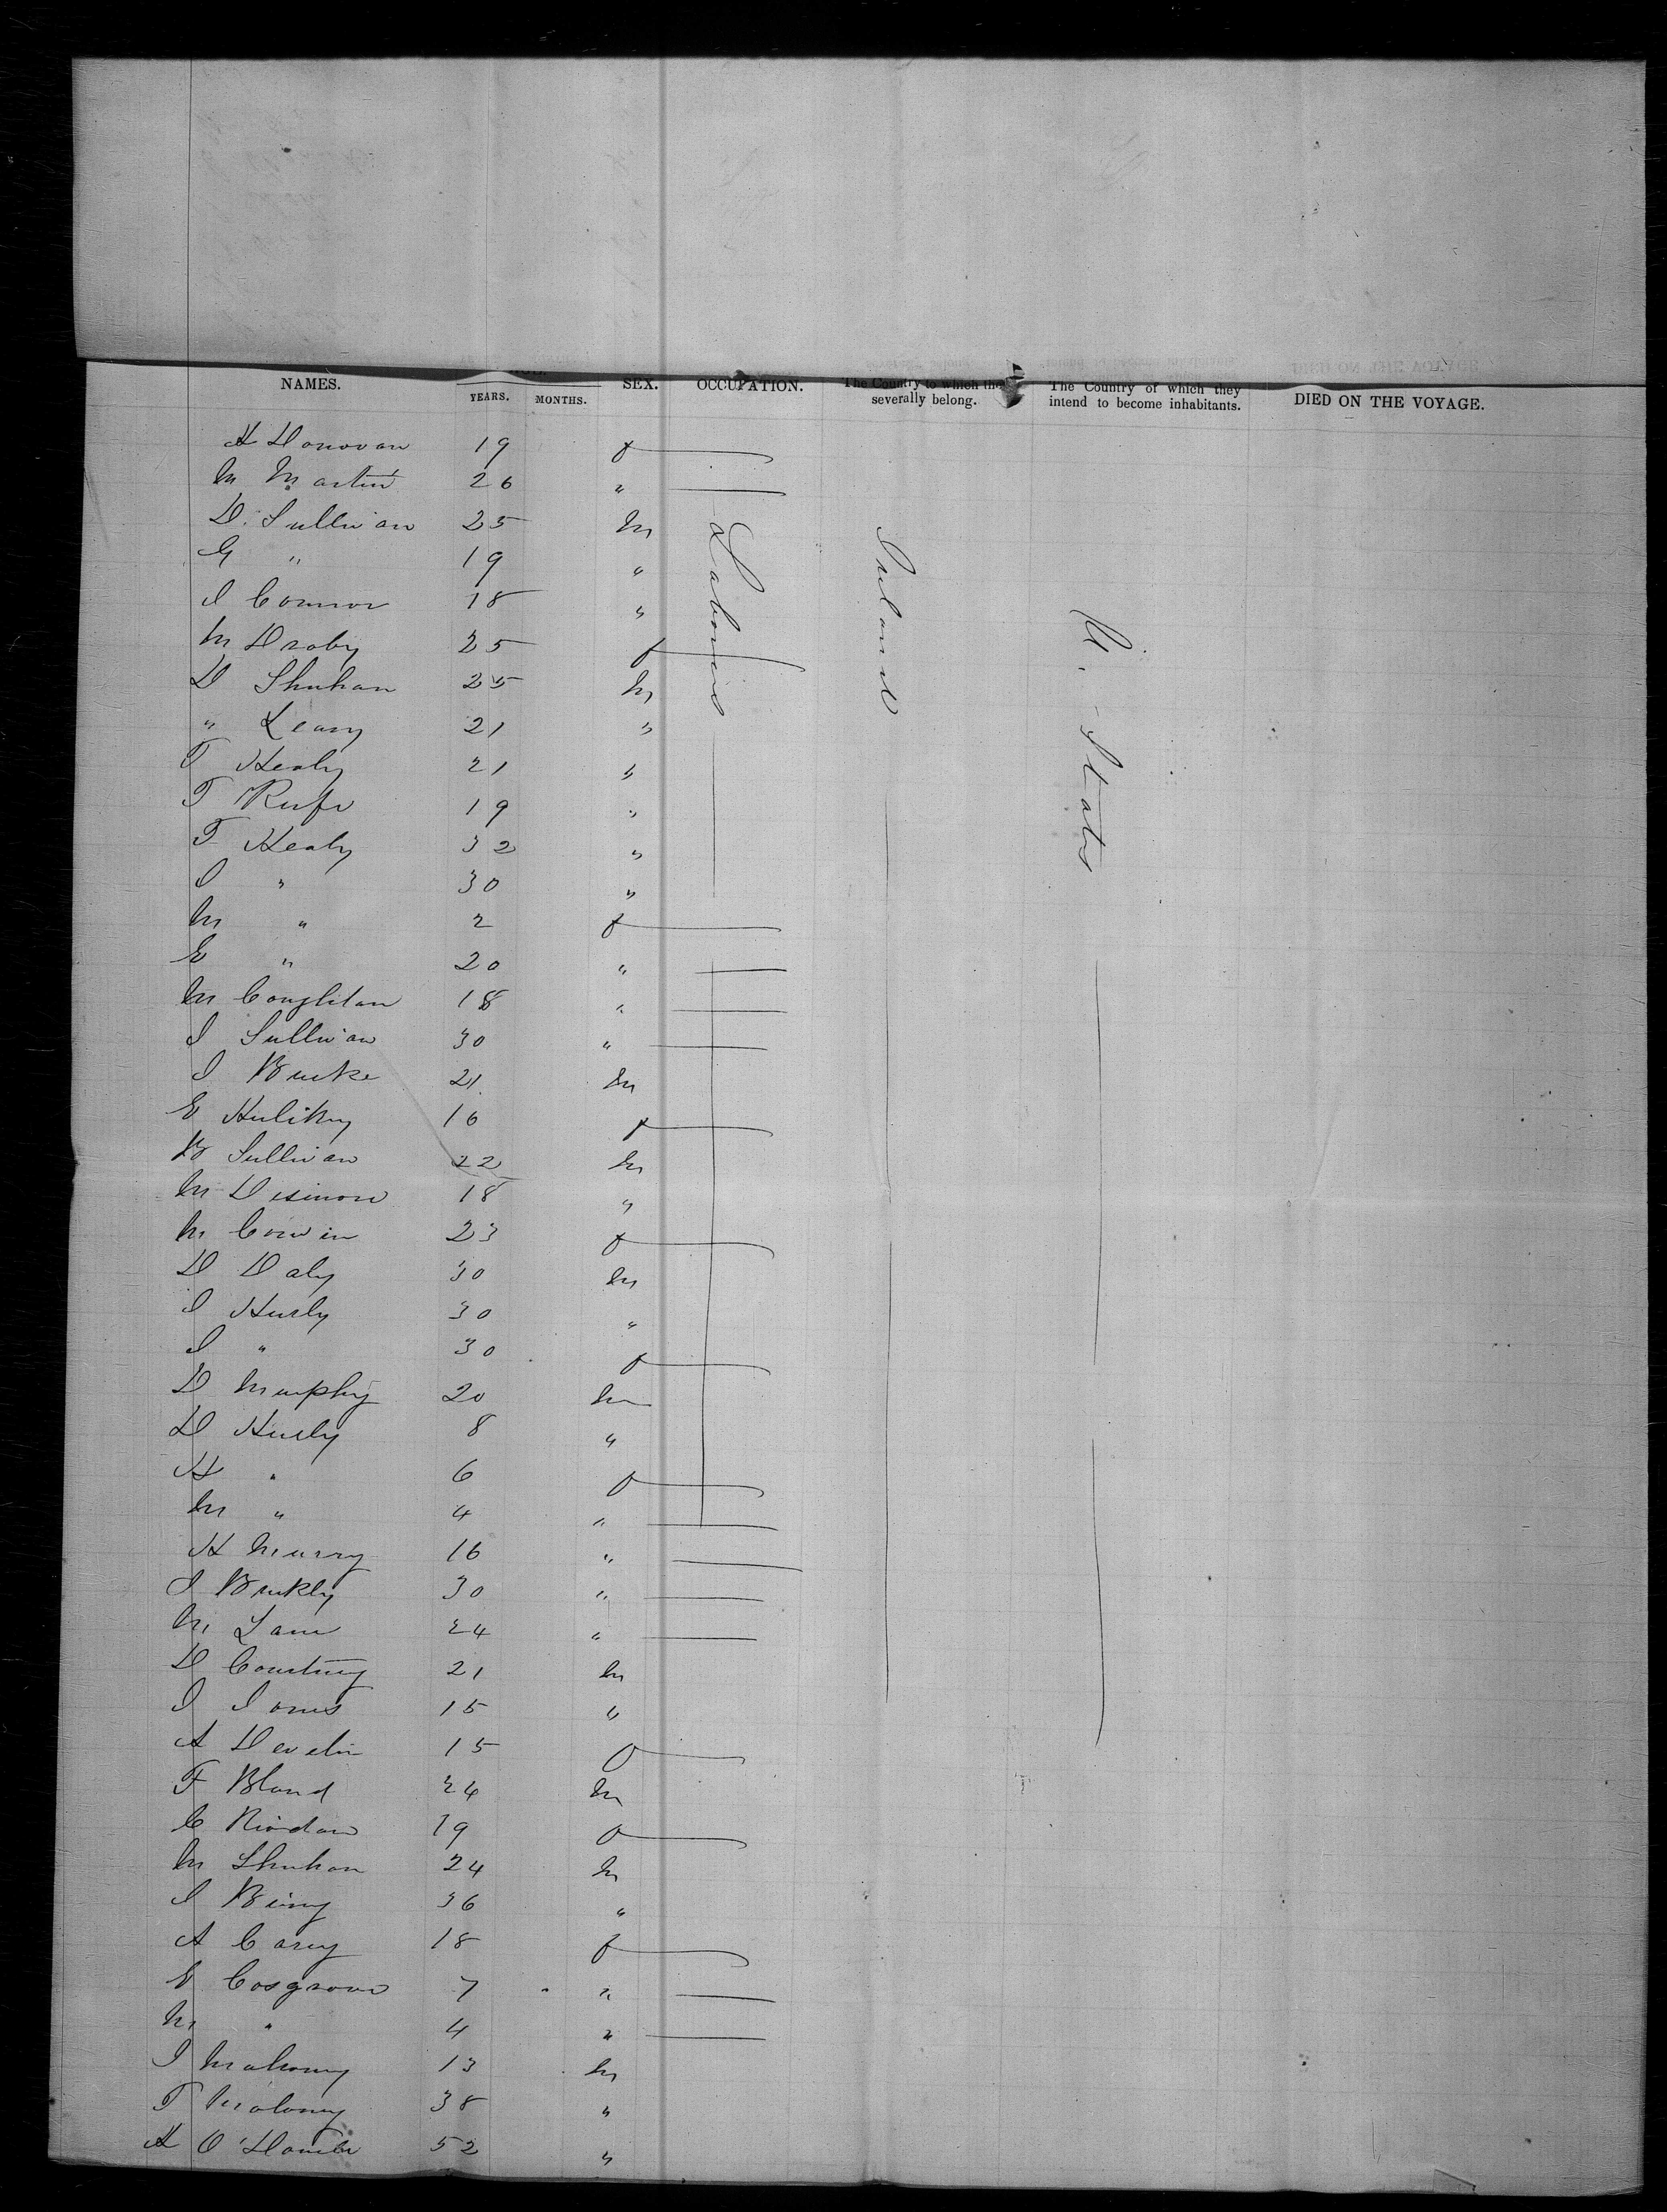 NAMES. YEARS. MONTHS. SEX. OCCUPATION. The Country to which they severally belong. The Country of which they intend to become inhabitants. DIED ON THE VOYAGE.
Labourers
Ireland
U. States
H Donovan 19 f
M Martin 26 "
D. Sullivan 25 M
G " 19 "
J Connor 18 "
M Draby 25 f
D Shuhan 25 M
" Leary 21 "
T Healy 21 "
T 19 "
T Healy 32 "
J " 30 "
M " 2 f
E " 20 "
M Coughlan 18 "
J Sullivan 30 "
J Burke 21 M
E 16 f
B Sullivan 22 M
M 18 "
M 23 f
D Daly 30 M
J Hurly 30 "
J " 30 f
D Murphy 20 M
D Hurly 8 "
H " 6 f
M " 4 "
H Murry 16 "
J Bukly 30 "
M Lane 24 "
D Courtney 21 M
J Jones 15 "
A Devlin 15 f
F Bland 24 M
C Riordan 19 f
M Shuhan 24 M
J 36 "
A Carey 18 f
E Cosgrove 7 "
M " 4 "
J Mahoney 13 M
T Maloney 38 "
H 52 "